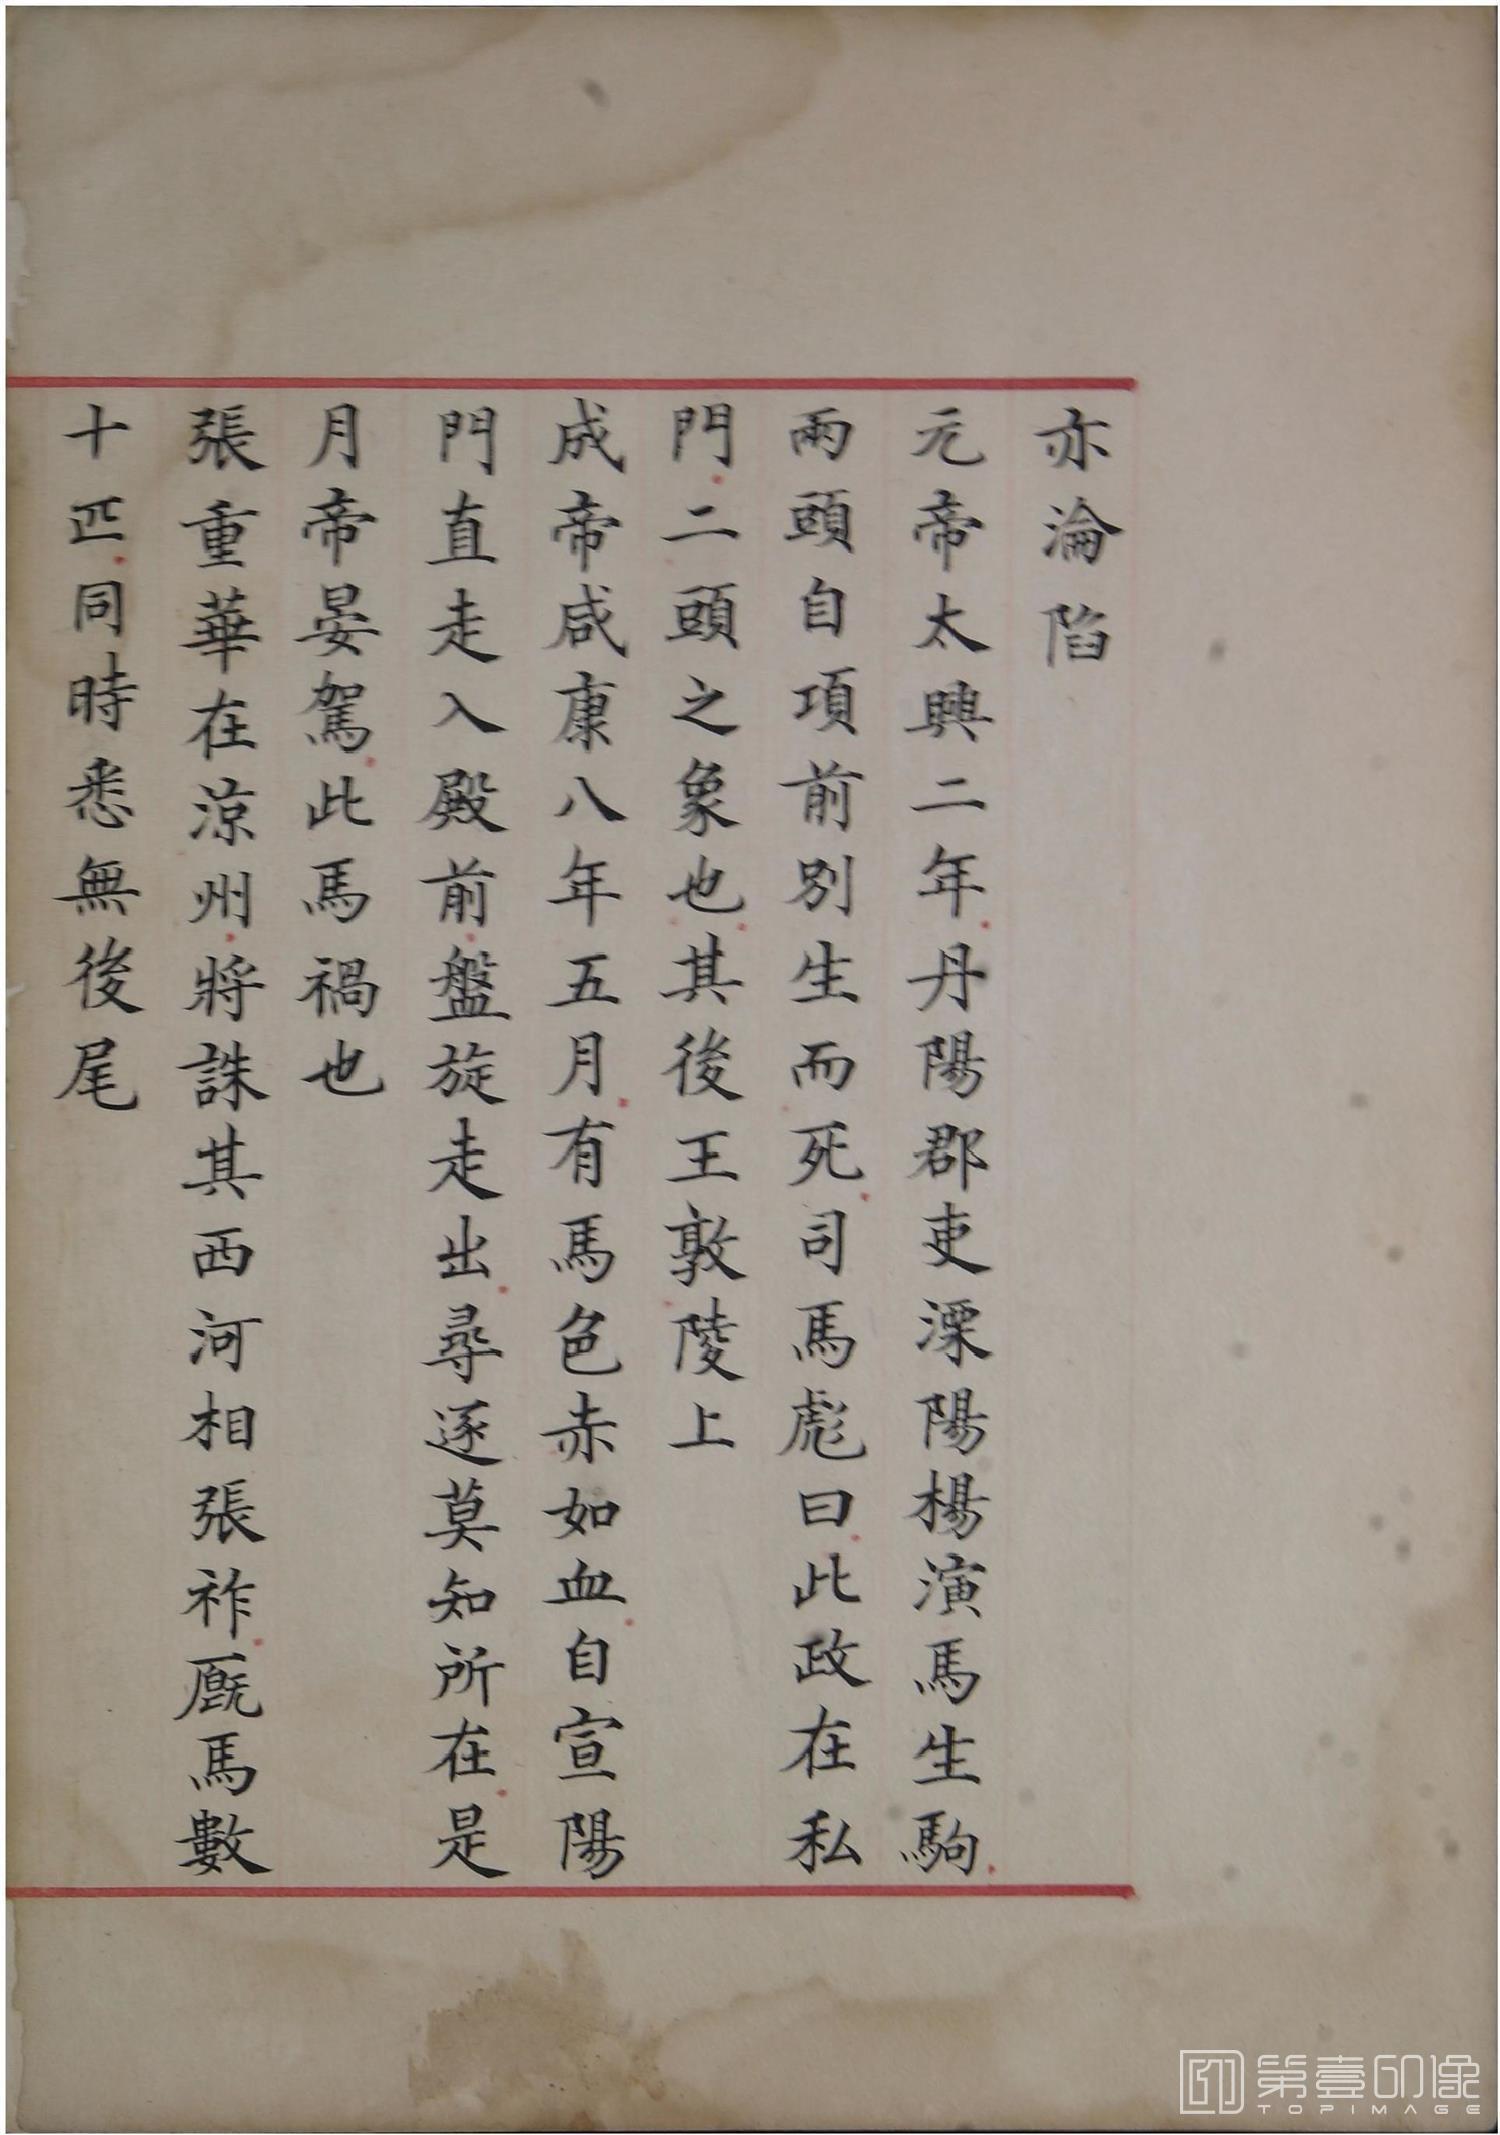 亦淪陷
元帝太興二年丹陽郡吏溧陽楊演馬生駒
兩頭自項前別生而死司馬彪曰此政在私
門二頭之象也其後王敦陵上
成帝咸康八年五月有馬色赤如血自宣陽
門直走入殿前盤旋走出尋逐莫知所在是
月帝晏駕此馬禍也
張重華在涼州將誅其西河相張祚廐馬數
十匹同時悉無後尾
第壹印像
TOPIMAGE